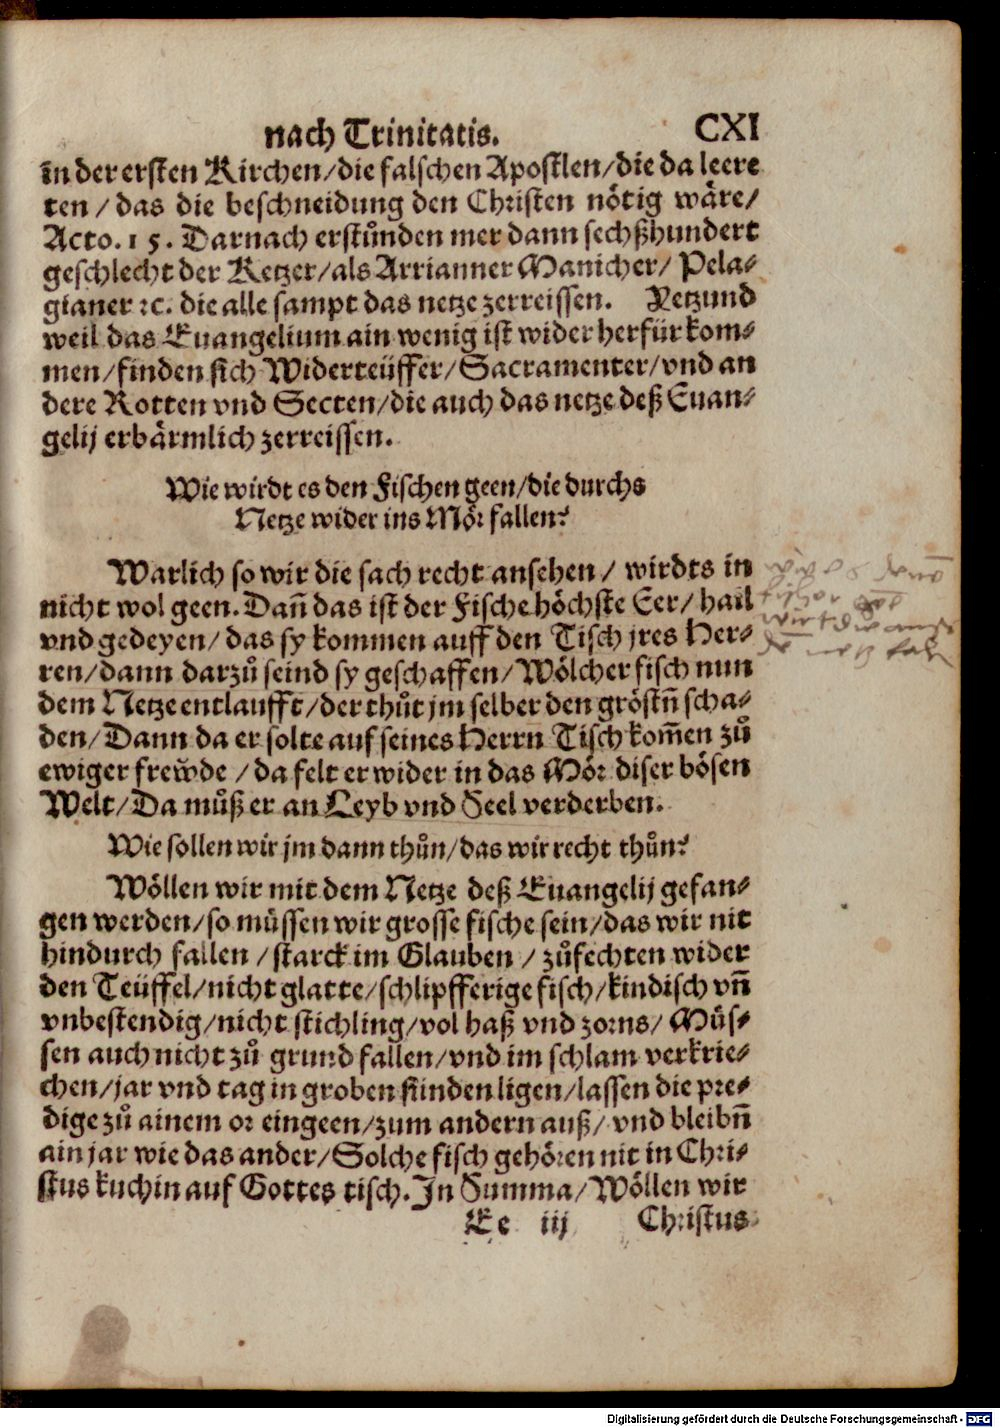 nach Trinitatis. CXI
in der ersten Kirchen/die falschen Apostlen/die da leere
ten / das die beschneidung den Christen nötig wäre/
Acto. 15. Darnach erstůnden mer dann sechßhundert
geschlecht der Ketzer/als Arrianner Manicher/ Pela-
gianer ꝛc. die alle sampt das netze zerreissen. Yetzund
weil das Euangelium ain wenig ist wider herfür kom-
men/finden sich Widerteüffer/Sacramenter/vnd an
dere Rotten vnd Secten/die auch das netze deß Euan-
gelij erbärmlich zerreissen.
Wie wirdt es den Fischen geen/die durchs
Netze wider ins Mör fallen?
Warlich so wir die sach recht ansehen / wirdts in
nicht wol geen. Dañ das ist der Fische höchste Eer/ hail
vnd gedeyen/ das sy kommen auff den Tisch jres Her-
ren/dann darzů seind sy geschaffen/ Wölcher fisch nun
dem Netze entlaufft/der thůt jm selber den gröstñ scha-
den/Dann da er solte auf seines Herrn Tisch kom̃en zů
ewiger frewde / da felt er wider in das Mör diser bösen
Welt/Da můß er an Leyb vnd Seel verderben.
Wie sollen wir jm dann thůn/das wir recht thůn?
Wöllen wir mit dem Netze deß Euangelij gefan-
gen werden/so müssen wir grosse fische sein/das wir nit
hindurch fallen /starck im Glauben / zůfechten wider
den Teüffel/nicht glatte/schlipfferige fisch/kindisch vñ
vnbestendig/nicht stichling/vol haß vnd zorns/ Müs-
sen auch nicht zů grund fallen/vnd im schlam verkrie-
chen/jar vnd tag in groben sünden ligen/lassen die pre-
dige zů ainem or eingeen/zum andern auß/ vnd bleibñ
ain jar wie das ander/Solche fisch gehören nit in Chri-
stus kuchin auf Gottes tisch. In Summa/Wöllen wir
Ee iij Christus
Digitalisierung gefördert durch die Deutsche Forschungsgemeinschaft - DFG